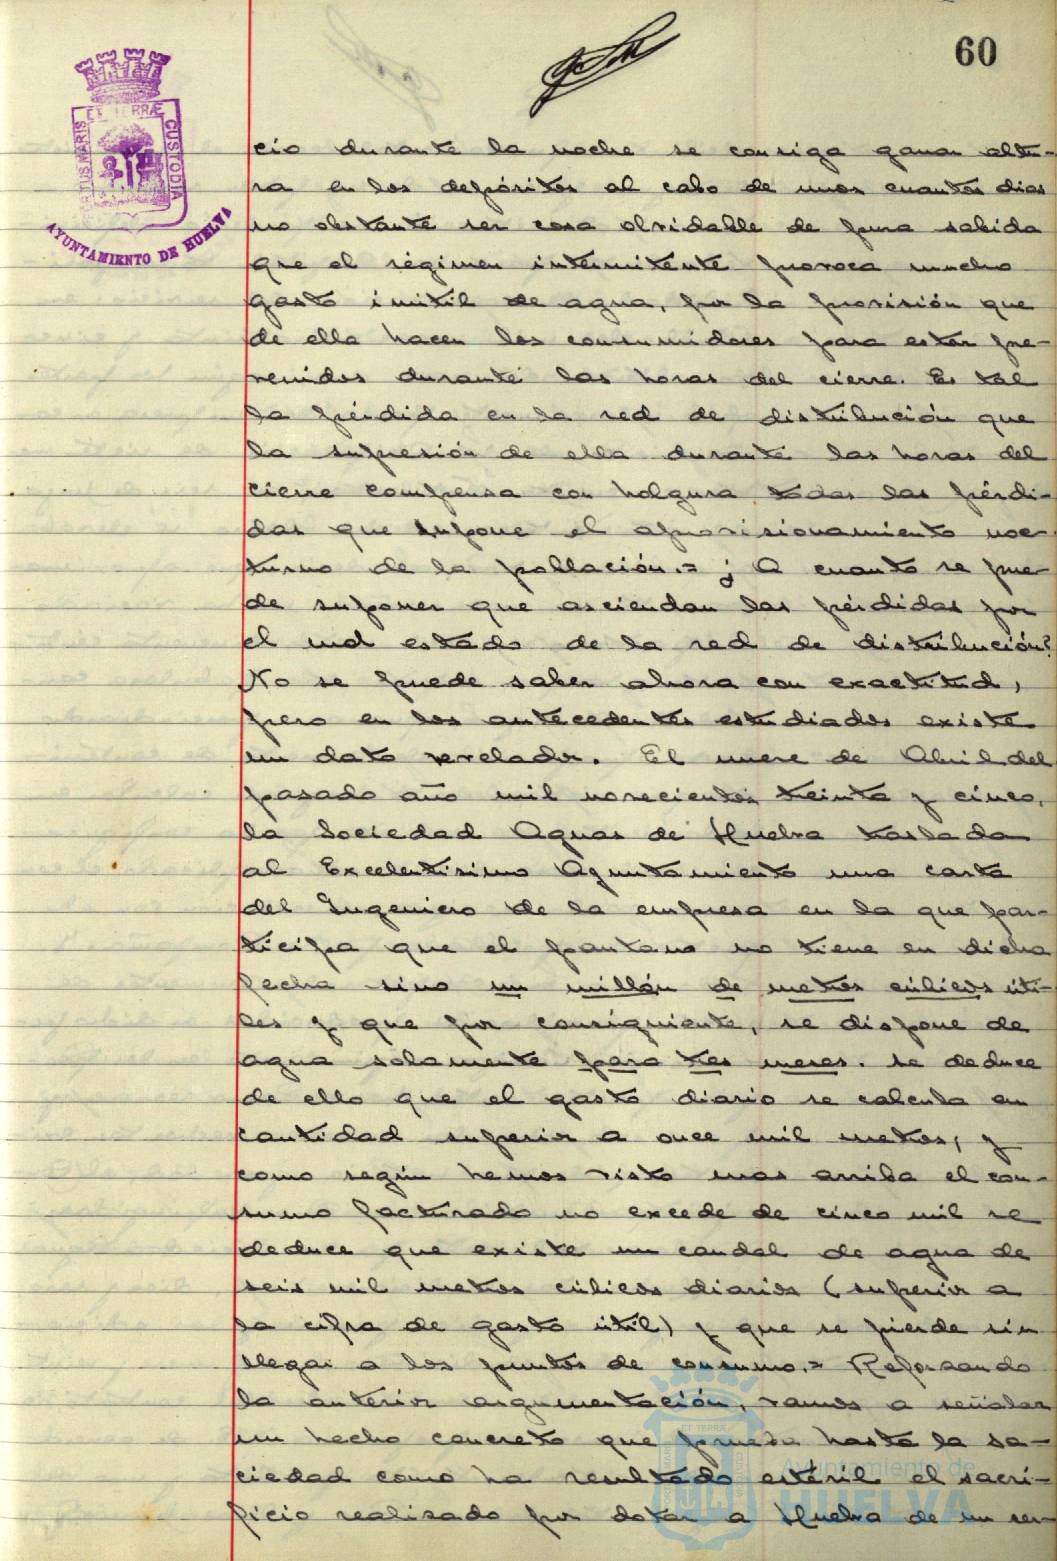 60
PORTUS MARIS ET TERRÆ CUSTODIA
AYUNTAMIENTO DE HUELVA
cio durante la noche se consiga ganar altu-
ra en los depósitos al cabo de unos cuantos dias
no obstante ser cosa olvidable de pura sabida
que el régimen intermitente provoca mucho
gasto inútil de agua, por la provisión que
de ella hacen los consumidores para estar pre-
venidos durante las horas del cierre. Es tal
la pérdida en la red de distribución que
la supresión de ella durante las horas del
cierre compensa con holgura todas las pérdi-
das que supone el aprovisionamiento noc-
turno de la población.= ¿ A cuanto se pue-
de suponer que asciendan las pérdidas por
el mal estado de la red de distribución?
No se puede saber ahora con exactitud,
pero en los antecedentes estudiados existe
un dato revelador. El nueve de Abril del
pasado año mil novecientos treinta y cinco,
la Sociedad Aguas de Huelva traslada
al Excelentísimo Ayuntamiento una carta
del Ingeniero de la empresa en la que par-
ticipa que el pantano no tiene en dicha
fecha sino un millón de metros cúbicos úti-
les y que por consiguiente, se dispone de
agua solamente para tres meses. se deduce
de ello que el gasto diario se calcula en
cantidad superior a once mil metros, y
como según hemos visto mas arriba el con-
sumo facturado no excede de cinco mil se
deduce que existe un caudal de agua de
seis mil metros cúbicos diarios (superior a
la cifra de gasto útil) y que se pierde sin
llegar a los puntos de consumo.= Reforzando
la anterior argumentación, vamos a señalar
un hecho concreto que prueba hasta la sa-
ciedad como ha resultado estéril el sacri-
ficio realizado por dotar a Huelva de un ser-
Ayuntamiento de
HUELVA